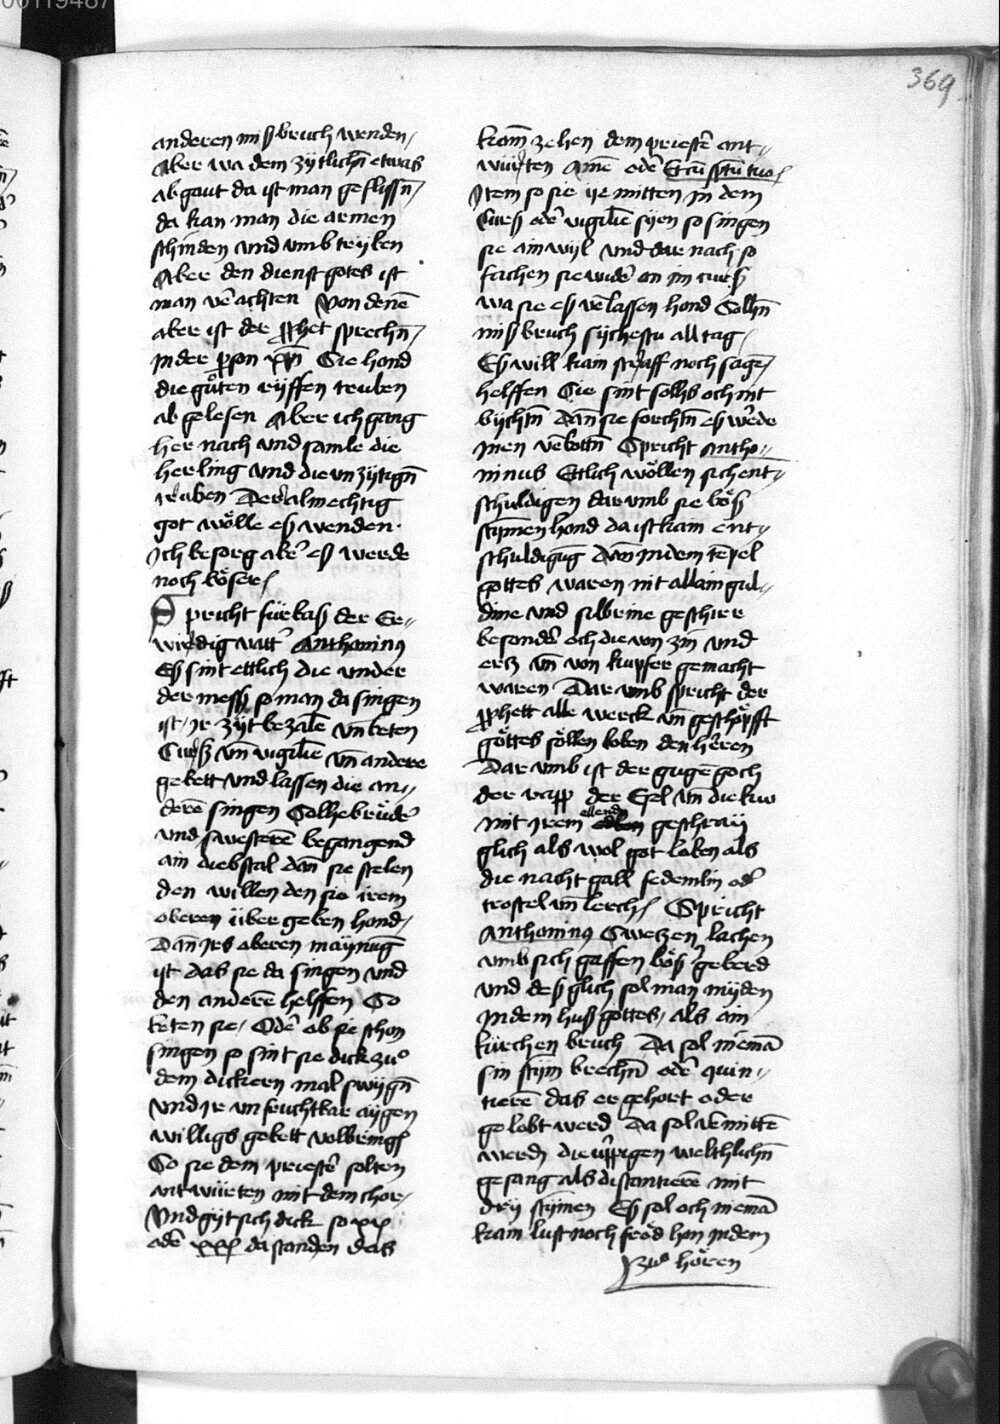 369
anderen mißbruch wenden /
Aber wa dem zytlichn̄ etwas
ab gaut da ist man geflissn̄ /
da kan man die armen
schinden vnd vmb tryben
Aber den dienst gotes ist
man v̄achten Von denē
aber ist der ꝓphet sprechn̄ /
Jn der ꝑson xp̄i Sie hond
die gůten ryffen truben
ab gelesen Aber ich gang
her nach vnd samle die
herling vnd die vnzytign̄
truben Der almechtig
got wölle eß wenden ·
Jch besorg aber eß werde
noch böser /
Spricht fürbaß der Er=
wirdig vatt̄ Anthoninus
Eß sint ettlich die vnder
der messß so man da singen
ist / Jr zyt bezalē vn̄ beten
Curß vn̄ vigilie vn̄ andere
gebett vnd lassen die an=
derē singen Solhe brüd̄
vnd swesterē begangend
ain diebstal dan̄ sie stelen
den willen den sie irem
oberen über geben hond /
Dan̄ Jrs oberen maynūg
ist das sie da singen vnd
den anderē helffen So
beten sie / Od̄ ob sie schon
singen so sint sie dick zuo
dem dickern mal swygn̄
Vnd Jr vnfruchtbar aygen
willigs gebett volbringē
So sie dem priest̄ solten
antwürten mit dem chor /
Vnd gyt sich dick so xx
od̄ xxx da standen das
kam̄ zehen dem priestē ant=
würten Amē od̄ Et cū sp̄tu tuo /
Jtem so sie ye mitten Jn dem
Curß od̄ vigilie syen so singen
sie ain wyl vnd dar nach so
fachen sie wid̄ an im curß
wa sie eß v̄lassen hond Sollhn̄
mißbruch sychestu all tag /
Eß will kain straff noch sagē /
helffen Sie sint sollhs och nit
bychtn̄ dan̄ sie forchtn̄ eß w̄de
Jnen v̄bottn̄ Spricht Antho=
ninus Ettlich wöllen sich ent=
schuldigen dar vmb sie böß
stym̄en hond da ist kain ent=
schuldigūg dan̄ Jn dem tēpel
gottes waren nit allain gul=
dine vnd silbrine geschirr
besond̄ och die von zin vnd
ercz vn̄ von kupfer gemacht
waren Dar vmb spricht der
ꝓphett alle werck vn̄ geschöpfft
gottes söllen loben den h̄ren
Dar vmb ist der gugēgoch
der rapp der Esel vn̄ die kuo
mit irem ellenden geschray
glich als wol got loben als
die nachtgall fedemlin od̄
trostel vn̄ lerch / Spricht
Anthoninus Swetzen lachen
vmb sich gaffen böß geberd
vnd deß glich sol man myden
Jn dem huß gottes / als ain
kürchen bruch Da sol niemā
sin stym̄ brechn̄ od̄ quin=
tierē das er gehort oder
gelobt werd Da sol v̄mittē
werdn̄ die üppigen welthlichn̄
gesang als discantierē mit
dry stym̄en Eß sol och niemā
kain lust noch fröd han Jn dem
zuo hören